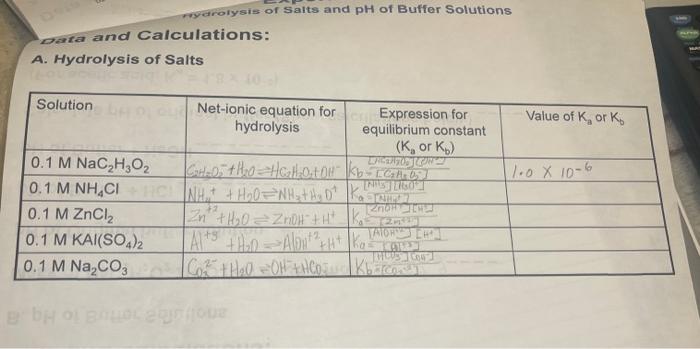 Hydrolysis of Salts and pH of Buffer Solutions
Data and Calculations:
A. Hydrolysis of Salts
Solution
Net-ionic equation for hydrolysis
Expression for equilibrium constant (Ka or Kb)
Value of Ka or Kb
0.1 M NaC2H3O2
C2H3O2⁻ + H2O ⇌ HC2H3O2 + OH⁻
Kb = [HC2H3O2][OH⁻] / [C2H3O2⁻]
1.0 X 10⁻⁶
0.1 M NH4Cl
NH4⁺ + H2O ⇌ NH3 + H3O⁺
Ka = [NH3][H3O⁺] / [NH4⁺]
0.1 M ZnCl2
Zn⁺² + H2O ⇌ ZnOH⁺ + H⁺
Ka = [ZnOH⁺][H⁺] / [Zn⁺²]
0.1 M KAl(SO4)2
Al⁺³ + H2O ⇌ AlOH⁺² + H⁺
Ka = [AlOH⁺²][H⁺] / [Al⁺³]
0.1 M Na2CO3
CO3²⁻ + H2O ⇌ OH⁻ + HCO3⁻
Kb = [HCO3⁻][OH⁻] / [CO3⁻²]